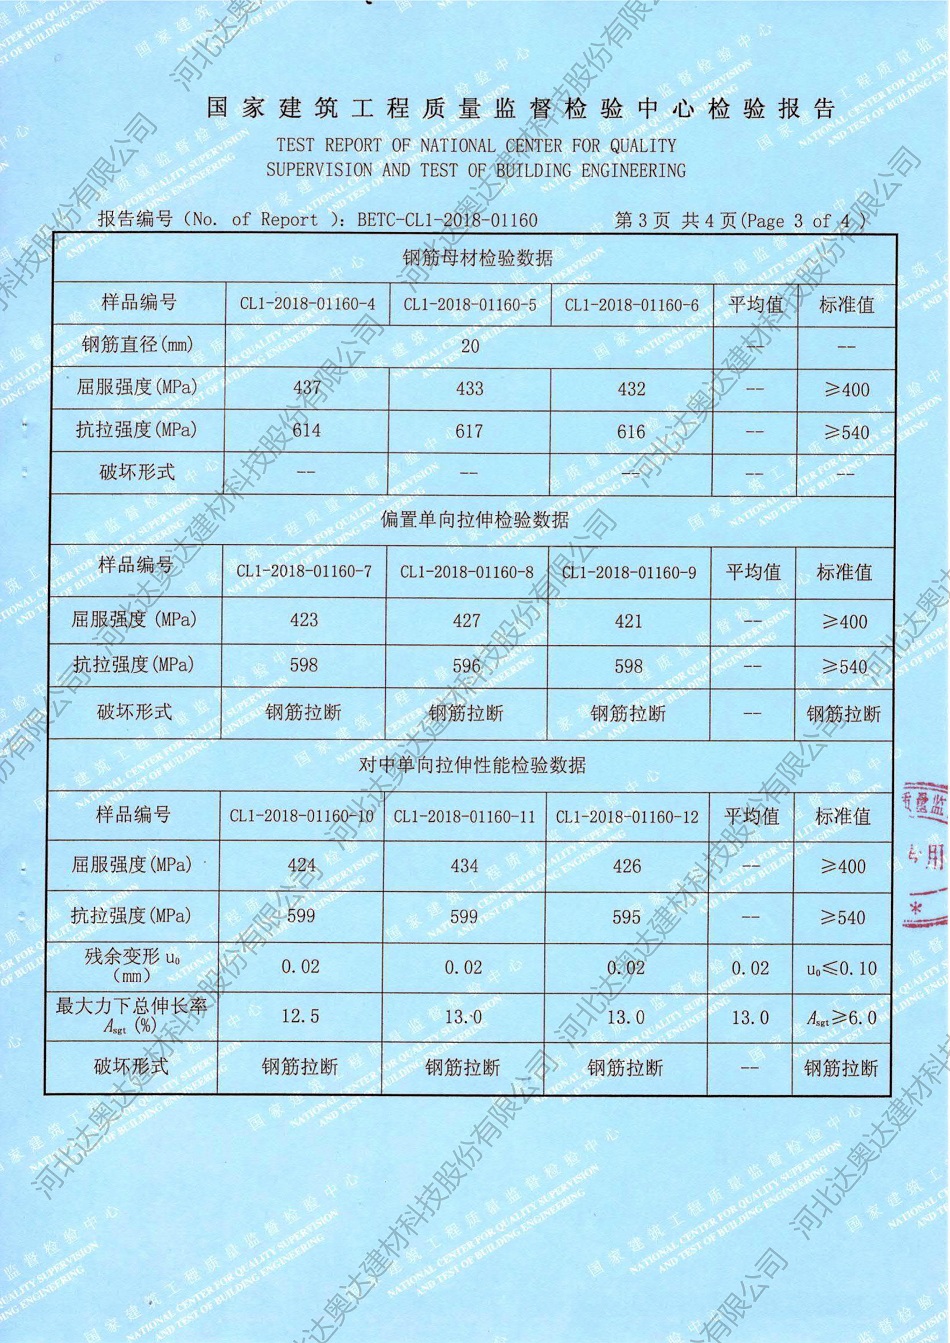 国家建筑工程质量监督检验中心检验报告
TEST REPORT OF NATIONAL CENTER FOR QUALITY
SUPERVISION AND TEST OF BUILDING ENGINEERING
报告编号（No. of Report ）：BETC-CL1-2018-01160 第 3 页 共 4 页(Page 3 of 4 )
钢筋母材检验数据
样品编号 CL1-2018-01160-4 CL1-2018-01160-5 CL1-2018-01160-6 平均值 标准值
钢筋直径(mm) 20 -- --
屈服强度(MPa) 437 433 432 -- ≥400
抗拉强度(MPa) 614 617 616 -- ≥540
破坏形式 -- -- -- -- --
偏置单向拉伸检验数据
样品编号 CL1-2018-01160-7 CL1-2018-01160-8 CL1-2018-01160-9 平均值 标准值
屈服强度 (MPa) 423 427 421 -- ≥400
抗拉强度(MPa) 598 596 598 -- ≥540
破坏形式 钢筋拉断 钢筋拉断 钢筋拉断 -- 钢筋拉断
对中单向拉伸性能检验数据
样品编号 CL1-2018-01160-10 CL1-2018-01160-11 CL1-2018-01160-12 平均值 标准值
屈服强度(MPa) 424 434 426 -- ≥400
抗拉强度(MPa) 599 599 595 -- ≥540
残余变形 u₀ (mm) 0.02 0.02 0.02 0.02 u₀≤0.10
最大力下总伸长率 Asgt (%) 12.5 13.0 13.0 13.0 Asgt≥6.0
破坏形式 钢筋拉断 钢筋拉断 钢筋拉断 -- 钢筋拉断
河北达奥达建材科技股份有限公司
国家建筑工程质量监督检验中心
NATIONAL CENTER FOR QUALITY SUPERVISION
AND TEST OF BUILDING ENGINEERING